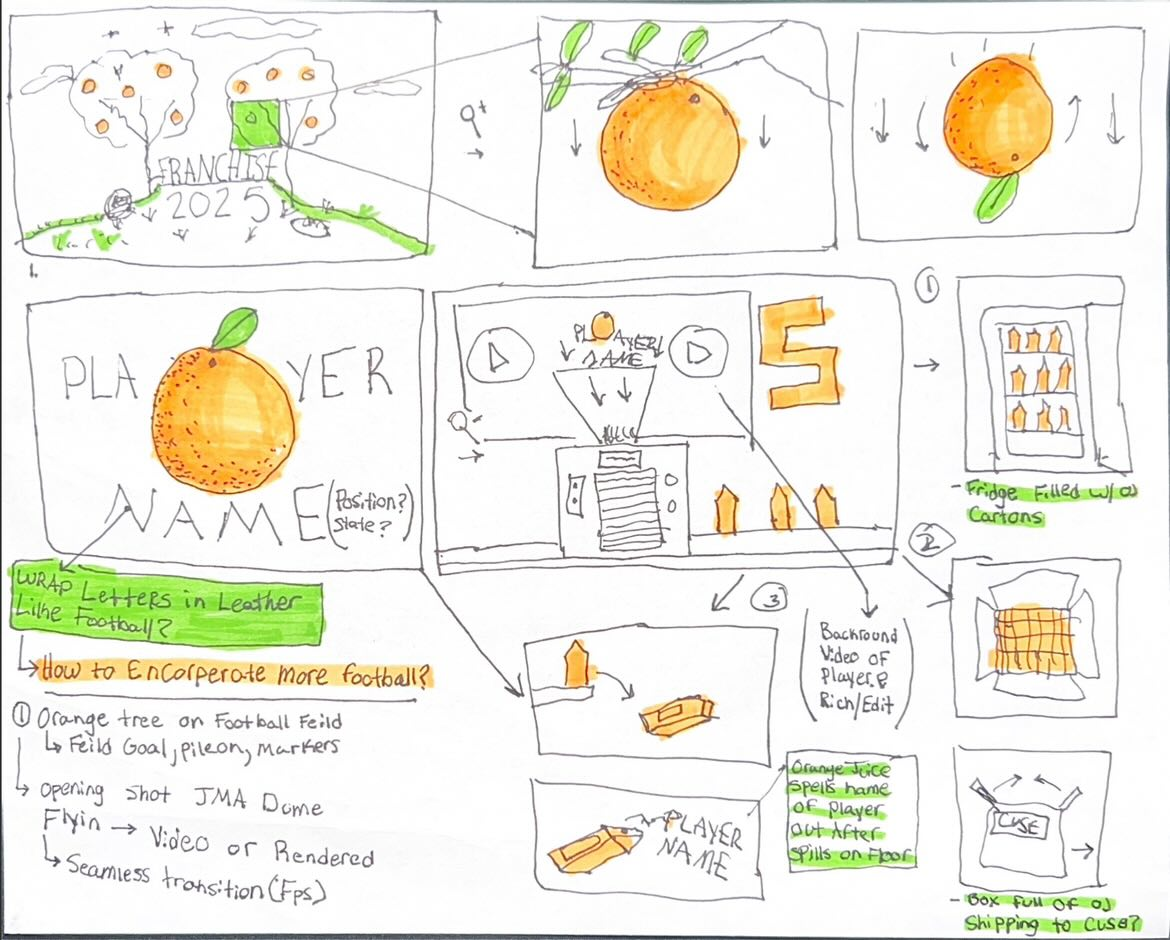 FRANCHISE
2025
1.
PLA YER
NAME
(Position?
State?)
PL AYER
NAME
S
①
- Fridge Filled w/ OJ
Cartons
②
③
WRAP Letters in Leather
Like Football?
How to Encorperate more football?
① Orange tree on Football Feild
Feild Goal, pileon, markers
Opening Shot JMA Dome
Flyin → Video or Rendered
Seamless transition (Fps)
(Backround
Video of
Player &
Rich/Edit)
PLAYER
NAME
Orange Juice
Spells name
Of player
Out After
Spills on Floor
CUSE
- Box full of OJ
Shipping to CUSE?